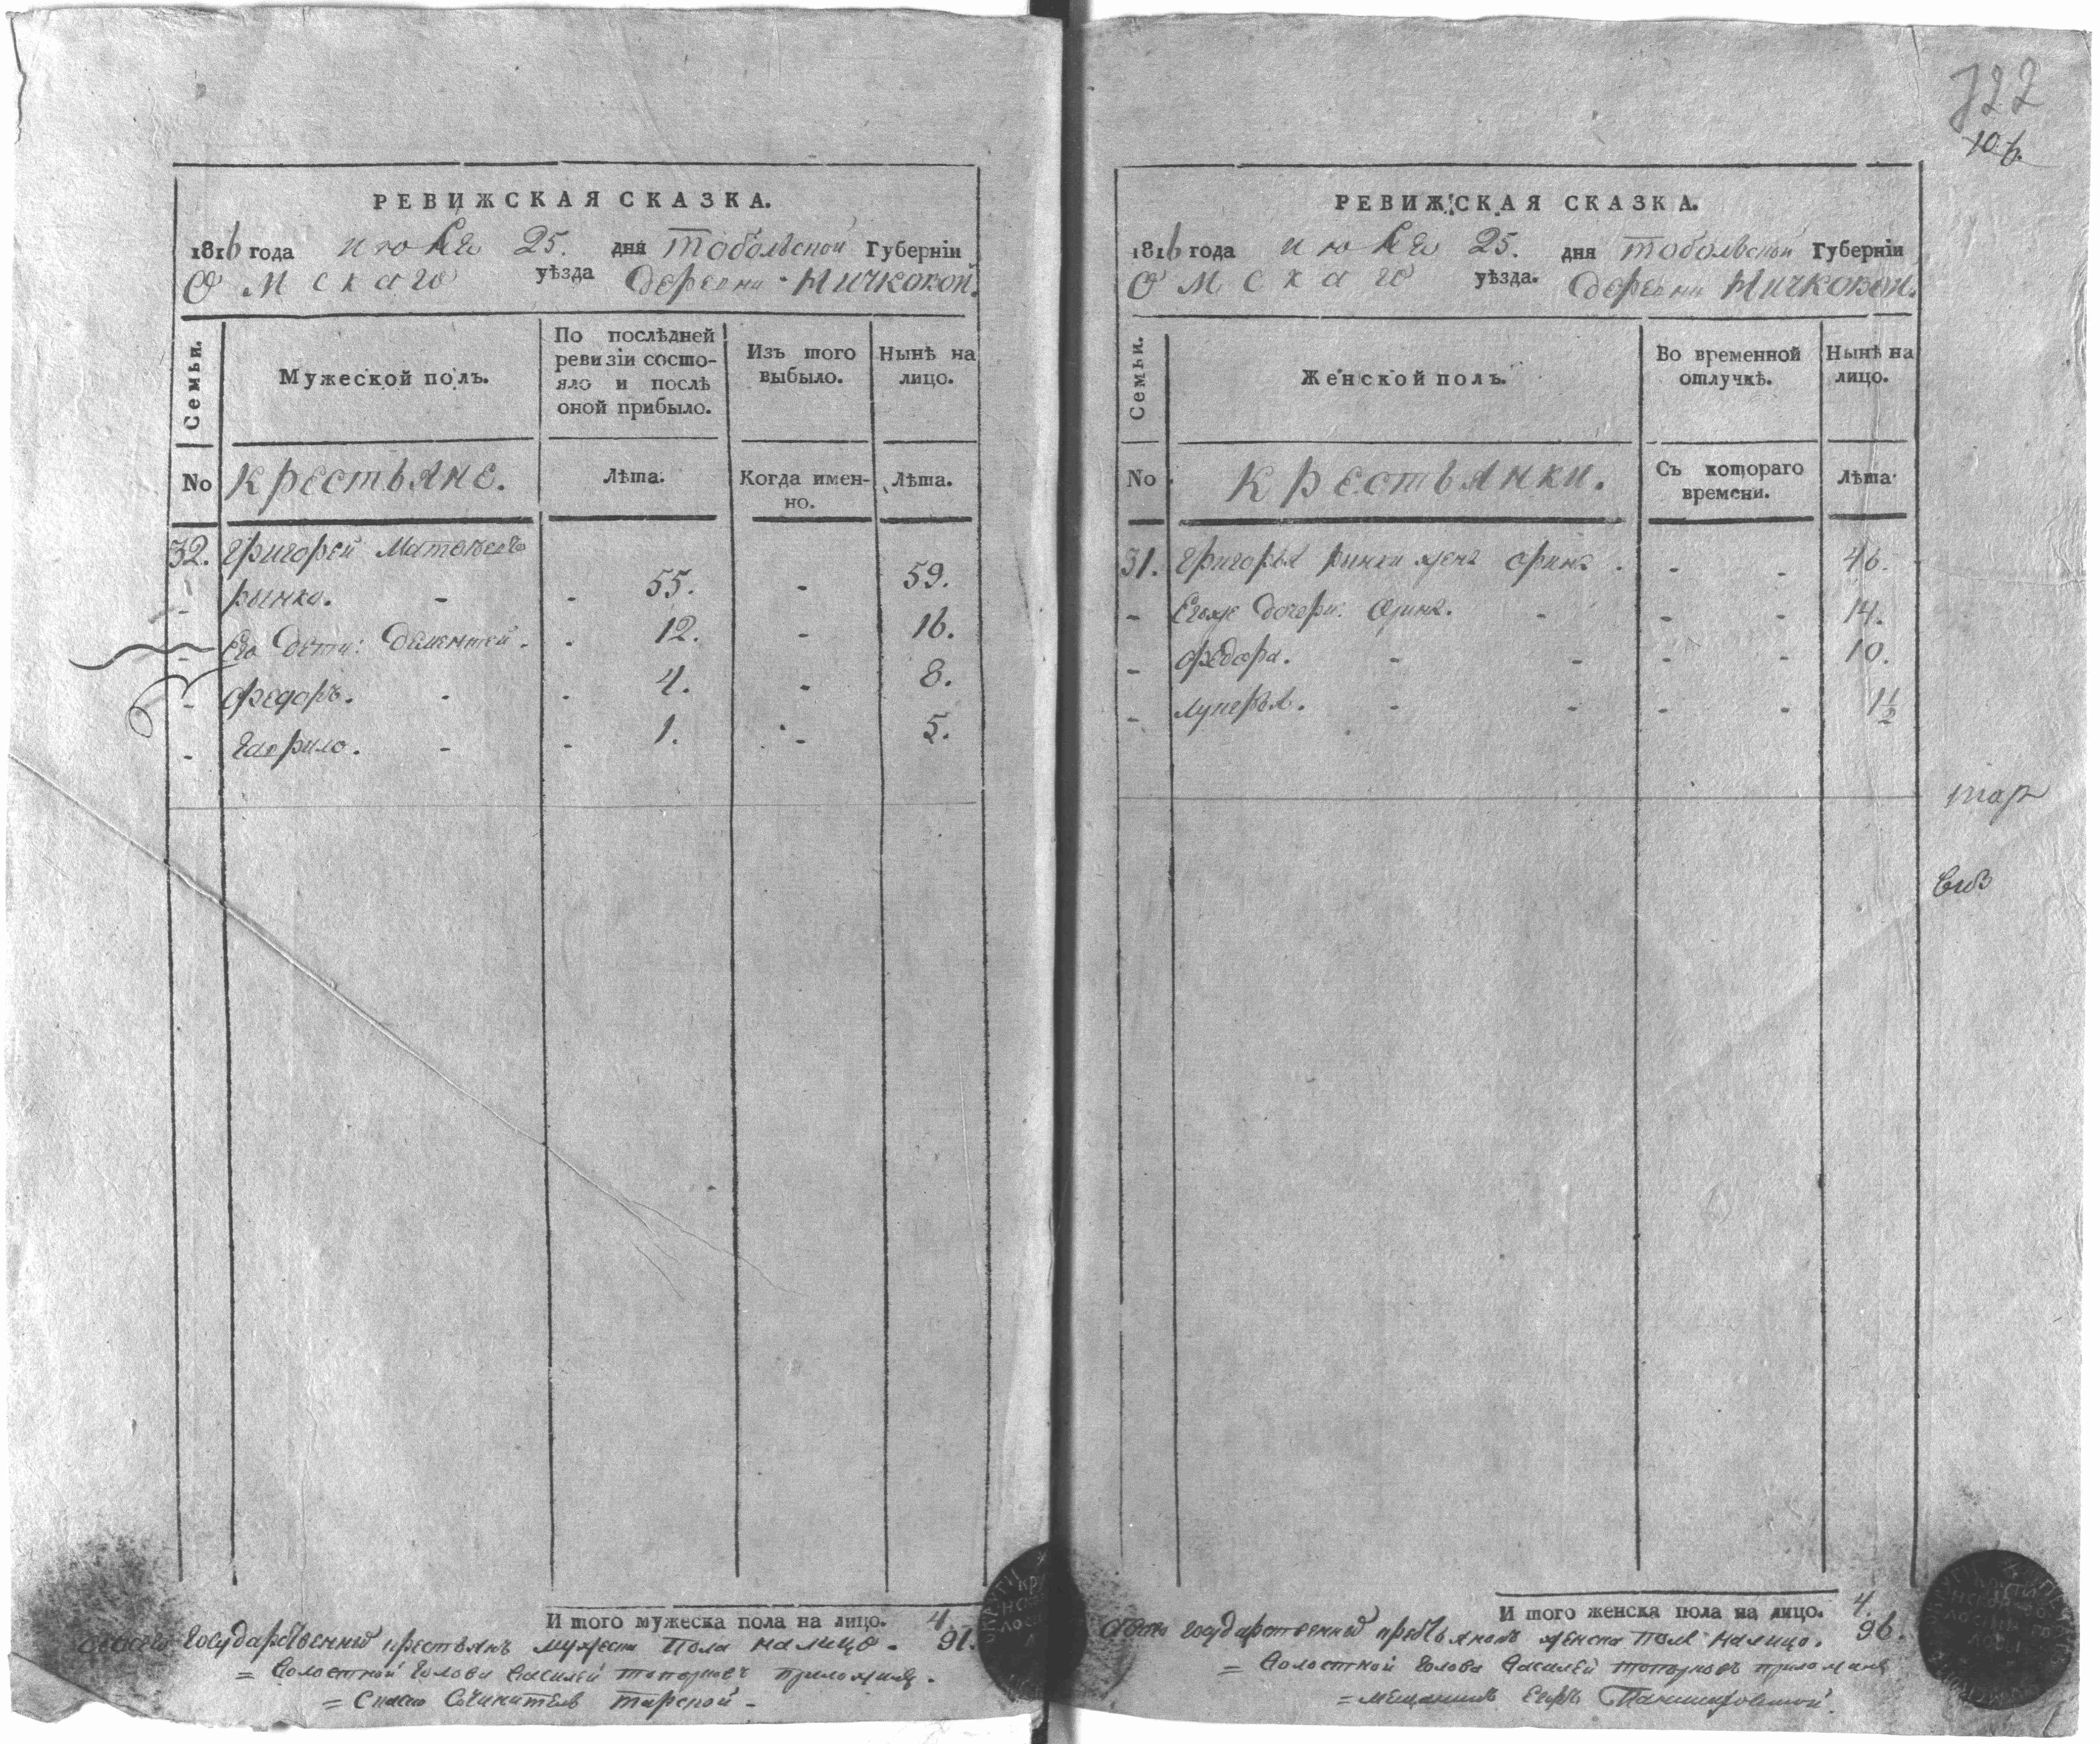 РЕВИЖСКАЯ СКАЗКА.
1816 года июля 25. дня Тобольской Губерніи
Омскаго уѣзда деревни Мичковой.
Семьи.
Мужеской полъ.
По послѣдней ревизіи состояло и послѣ оной прибыло.
Изъ того выбыло.
Нынѣ на лицо.
No Крестьяне. Лѣта. Когда именно. Лѣта.
32. Григорей Матвѣевъ
- рынка. - - 55. - 59.
- Его дети: Дементей. - 12. - 16.
- Федоръ. - - 4. - 8.
- Гаврило. - - 1. - 5.
И того мужеска пола на лицо. 4.
всего государственныхъ крестьянъ мужеска пола налицо. 91.
= Волостной голова Василей Топорковъ приложилъ.
= Сочинитель Тарской -
722
106.
РЕВИЖСКАЯ СКАЗКА.
1816 года июля 25. дня Тобольской Губерніи
Омскаго уѣзда. деревни Мичковой.
Семьи.
Женской полъ.
Во временной отлучкѣ.
Нынѣ на лицо.
No Крестьянки. Съ котораго времени. Лѣта.
31. Григорья рынки жена Орина. - - 46.
- Егоже дочери: Орина. - - - 14.
- Федора. - - - - 10.
- Лукерья. - - - - 1½
тар
И того женска пола на лицо. 4.
всего государственныхъ крестьянокъ женска пола налицо. 96.
= Волостной голова Василей Топорковъ приложилъ
= мещанинъ